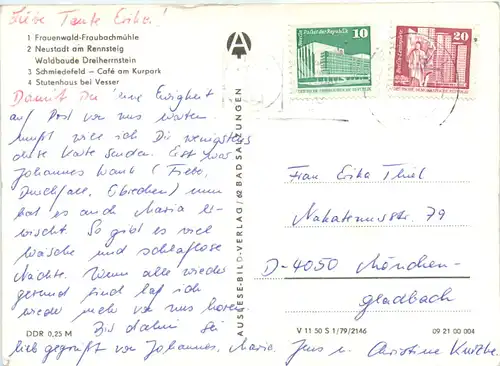 Liebe Tante Erika!
1 Frauenwald-Fraubachmühle
2 Neustadt am Rennsteig
Waldbaude Dreiherrnstein
3 Schmiedefeld – Café am Kurpark
4 Stutenhaus bei Vesser
Damit Du 'ne Ewigkeit
auf Post von uns warten
mußt will ich Dir wenigstens
diese Karte senden. Erst war
Johannes krank (Fieber,
Durchfall, Erbrechen) nun
hat es auch Maria er-
wischt. So gibt es viel
Wäsche und schlaflose
Nächte. Wenn alle wieder
gesund sind laß ich
wieder mehr von uns hören.
Bis dahin sei
lieb gegrüßt von Johannes, Maria,
Jens u. Christine
DDR 0,25 M
AUSLESE-BILD-VERLAG / 62 BAD SALZUNGEN
A
10
20
Frau Erika Thiel
79
D-4050 Mönchen-
gladbach
V 11 50 S 1/79/2146
09 21 00 004